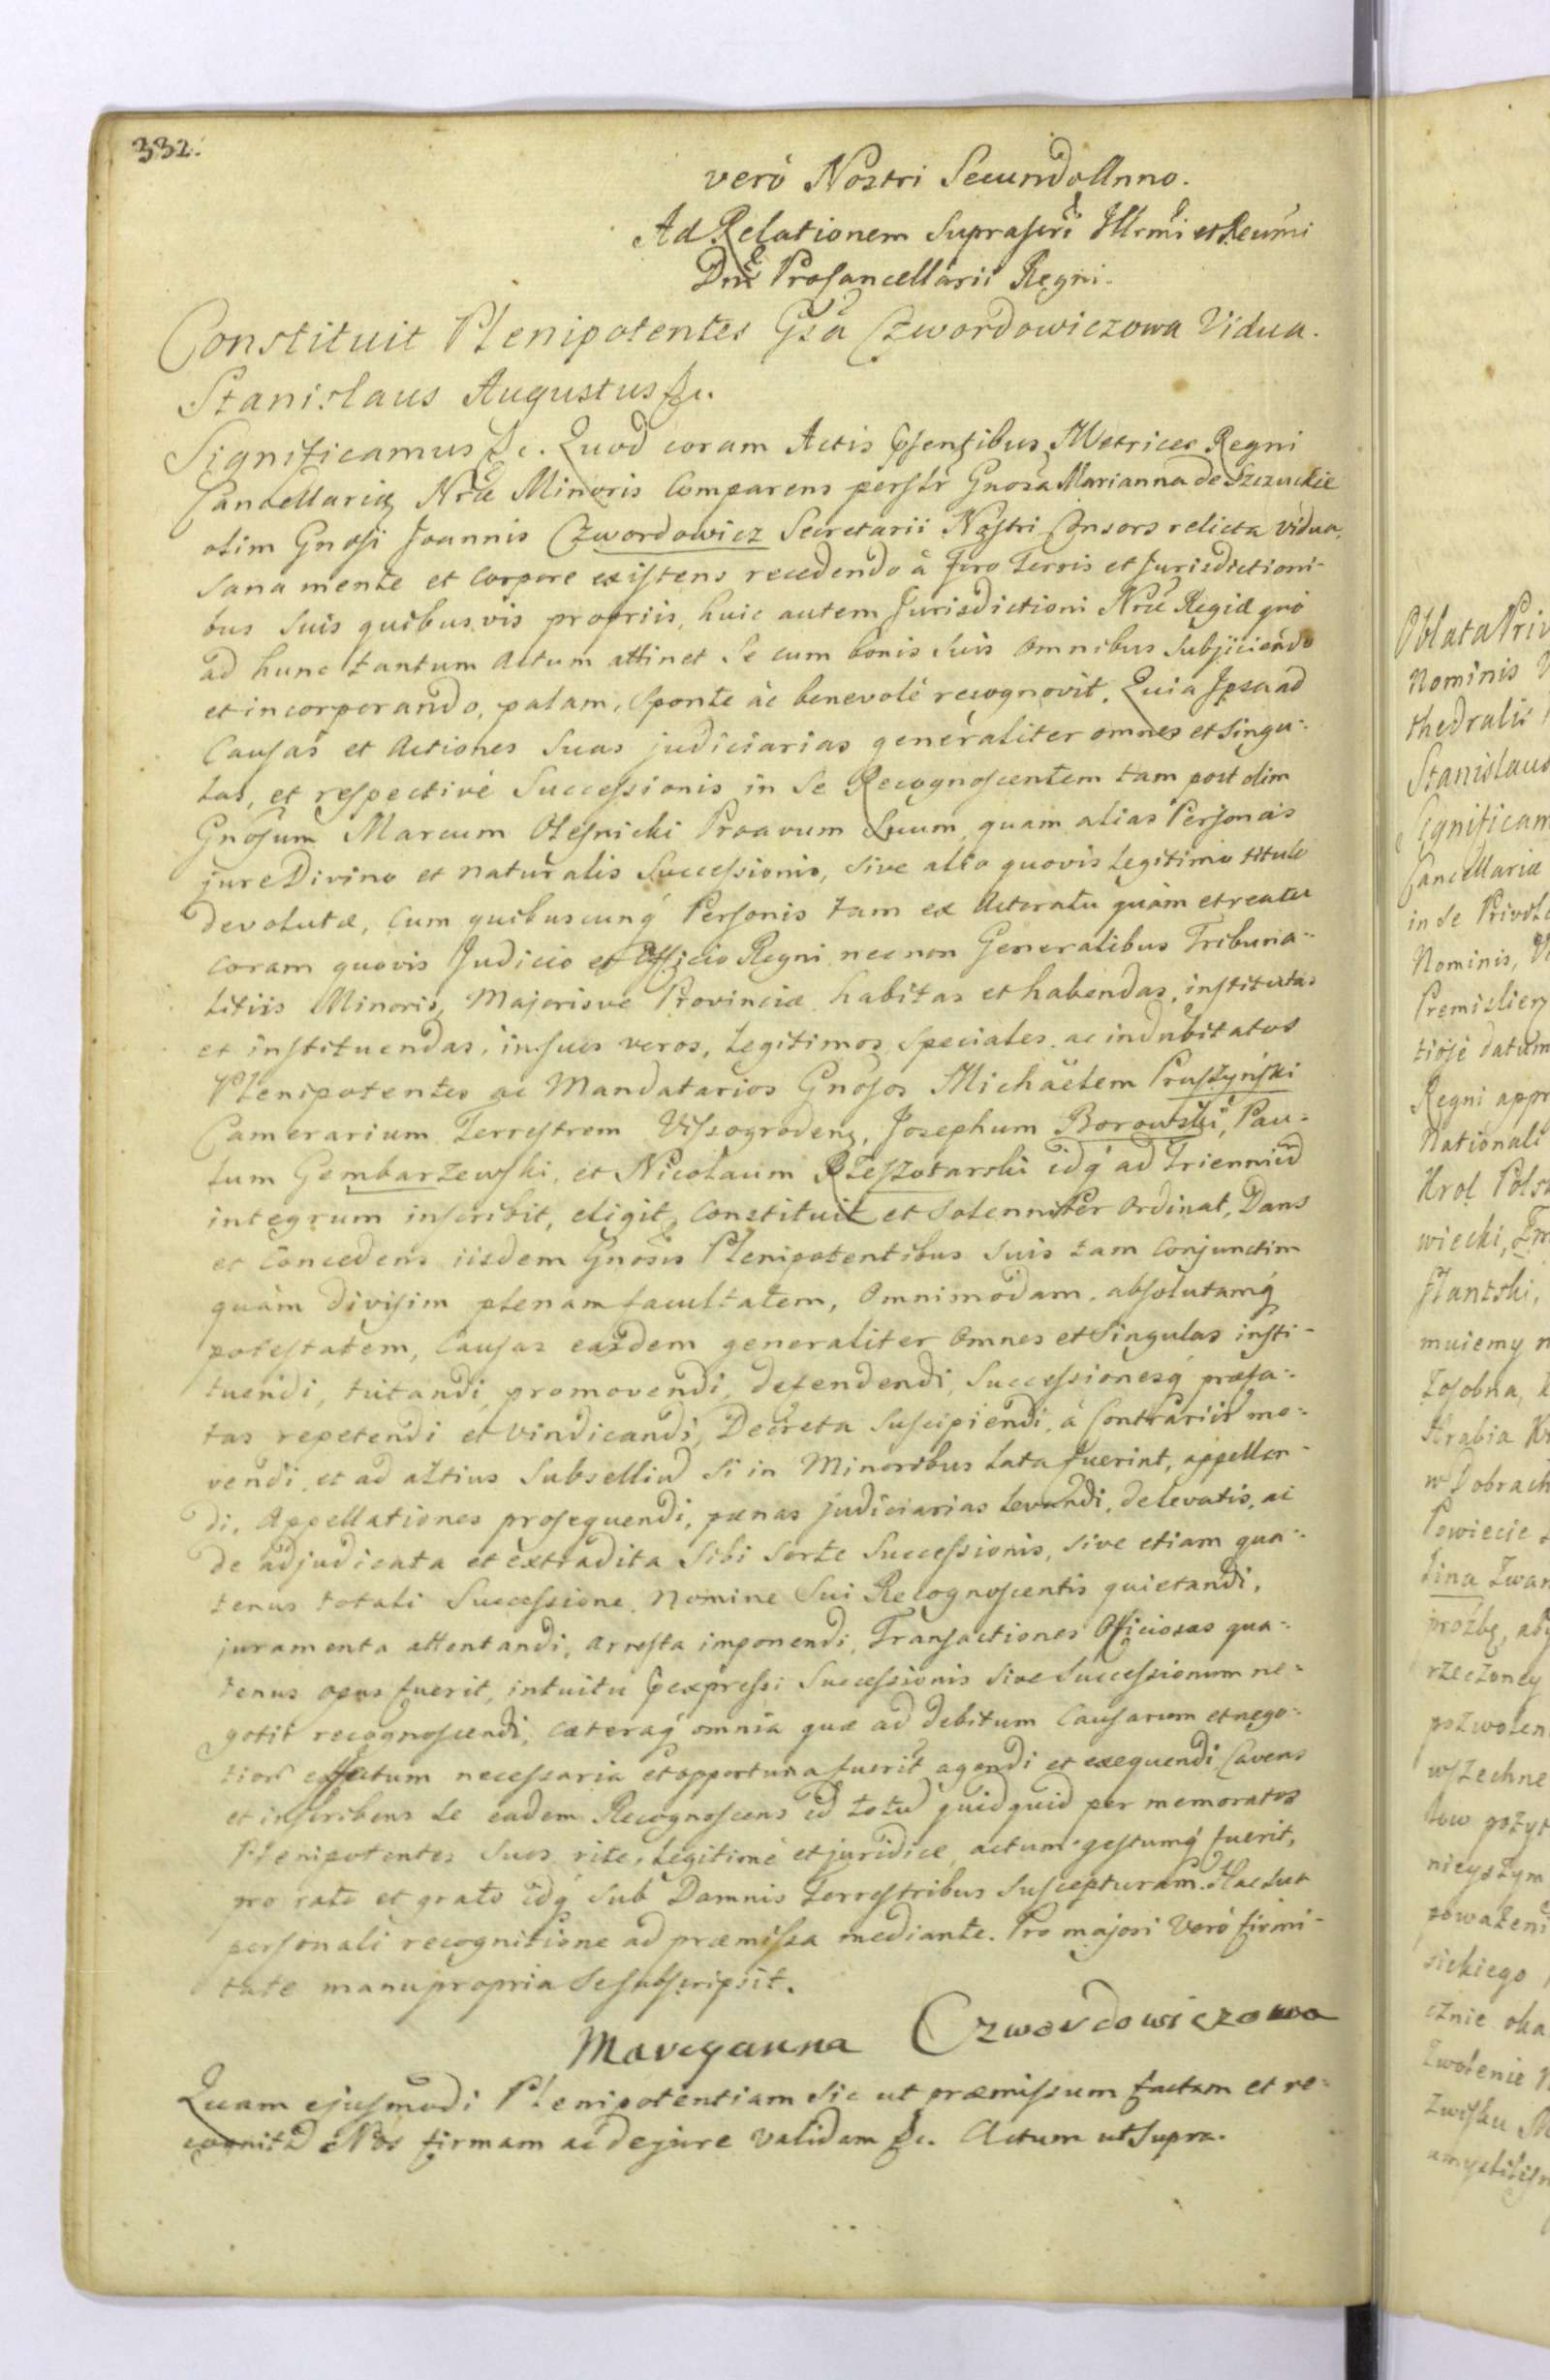 332.
verò Nostri Secundo Anno.
Ad Relationem Suprascri Illrmi et Reumi
Dni Procancellarii Regni.
Constituit Plenipotentes Gsa Czwordowiczowa Vidua.
Stanislaus Augustus &c.
Significamus &c. Quod coram Actis psentibus Metrices Regni
Cancellariæ Nræ Minoris Comparens perslr Gnosa Marianna de Szczuckie
olim Gnosi Joannis Czwordowicz Secretarii Nostri Consors relicta vidua,
sana mente et corpore existens recedendo à foro Terris et Jurisdictioni-
bus suis quibusvis propriis, huic autem Jurisdictioni Nræ Regiæ quò
ad hunc tantum Actum attinet se cum bonis suis omnibus subjiciendo
et incorporando, palam, sponte ac benevolè recognovit. Quia Ipsa ad
Causas et Actiones suas judiciarias generaliter omnes et singu-
las, et respectivè Successionis in se Recognoscentem tam post olim
Gnosum Marcum Olesnicki Proavum Suum, quam alias Personas
jure Divino et naturalis Successionis, sive alio quovis legitimo titulo
devolutæ, cum quibuscunq Personis tam ex Actoratu quàm et reatu
coram quovis Judicio et Officio Regni nec non Generalibus Tribuna-
litiis Minoris, Majorisve Provinciæ habitas et habendas, institutas
et instituendas, in suos veros, legitimos, speciales ac indubitatos
Plenipotentes ac Mandatarios Gnosos Michäelem Pruszyński
Camerarium Terrestrem Vissogrodens, Josephum Borowski, Pau-
lum Gembarzewski, et Nicolaum Rzeszotarski idq ad Trienniu
integrum inscribit, eligit, Constituit et solenniter ordinat, Dans
et Concedens iisdem Gnosis Plenipotentibus suis tam conjunctim
quàm divisim plenam facultatem, omnimodam, absolutamq
potestatem, Causas easdem generaliter omnes et singulas insti-
tuendi, tutandi, promovendi, defendendi, Successionesq præfa-
tas repetendi et vindicandi, Decreta suscipiendi, à Contrariis mo-
vendi, et ad altius Subselliu si in Minoribus lata fuerint, appellan-
di, Appellationes prosequendi, pænas judiciarias levandi, de levatis, ac
de adjudicata et extradita sibi sorte Successionis, sive etiam qua-
tenus totali Successione, nomine Sui Recognoscentis quietandi,
juramenta attentandi, arresta imponendi, Transactiones Officiosas qua-
tenus opus fuerit, intuitu pexpressi Successionis sive Successionum ne-
gotii recognoscendi, cæteraq omnia quæ ad debitum Causarum et nego-
tior effectum necessaria et opportuna fuerit agendi et exequendi, Cavens
et inscribens se eadem Recognoscens id totu quidquid per memoratos
Plenipotentes suos ritè, legitimè et juridicè actum gestumq fuerit,
pro rato et grato idq sub Damnis Terrestribus suscepturam. Hac sua
personali recognitione ad præmissa mediante. Pro majori verò firmi-
tate manu propria se subscripsit.
Maryanna Czwordowiczowa
Quam ejusmodi Plenipotentiam sic ut præmissum factam et re-
cognita Nos firmam ac de jure validam &c. Actum ut Supra.
Oblata Priv
Nominis
thedralis
Stanislaus
Significam
Cancellariæ
in se
Nominis,
tiosè datum
Regni appr
Nationali
Krol Pols
wiecki,
mujemy n
w Dobrach
Powiecie
rzeczoney
pozwolen
wszechne